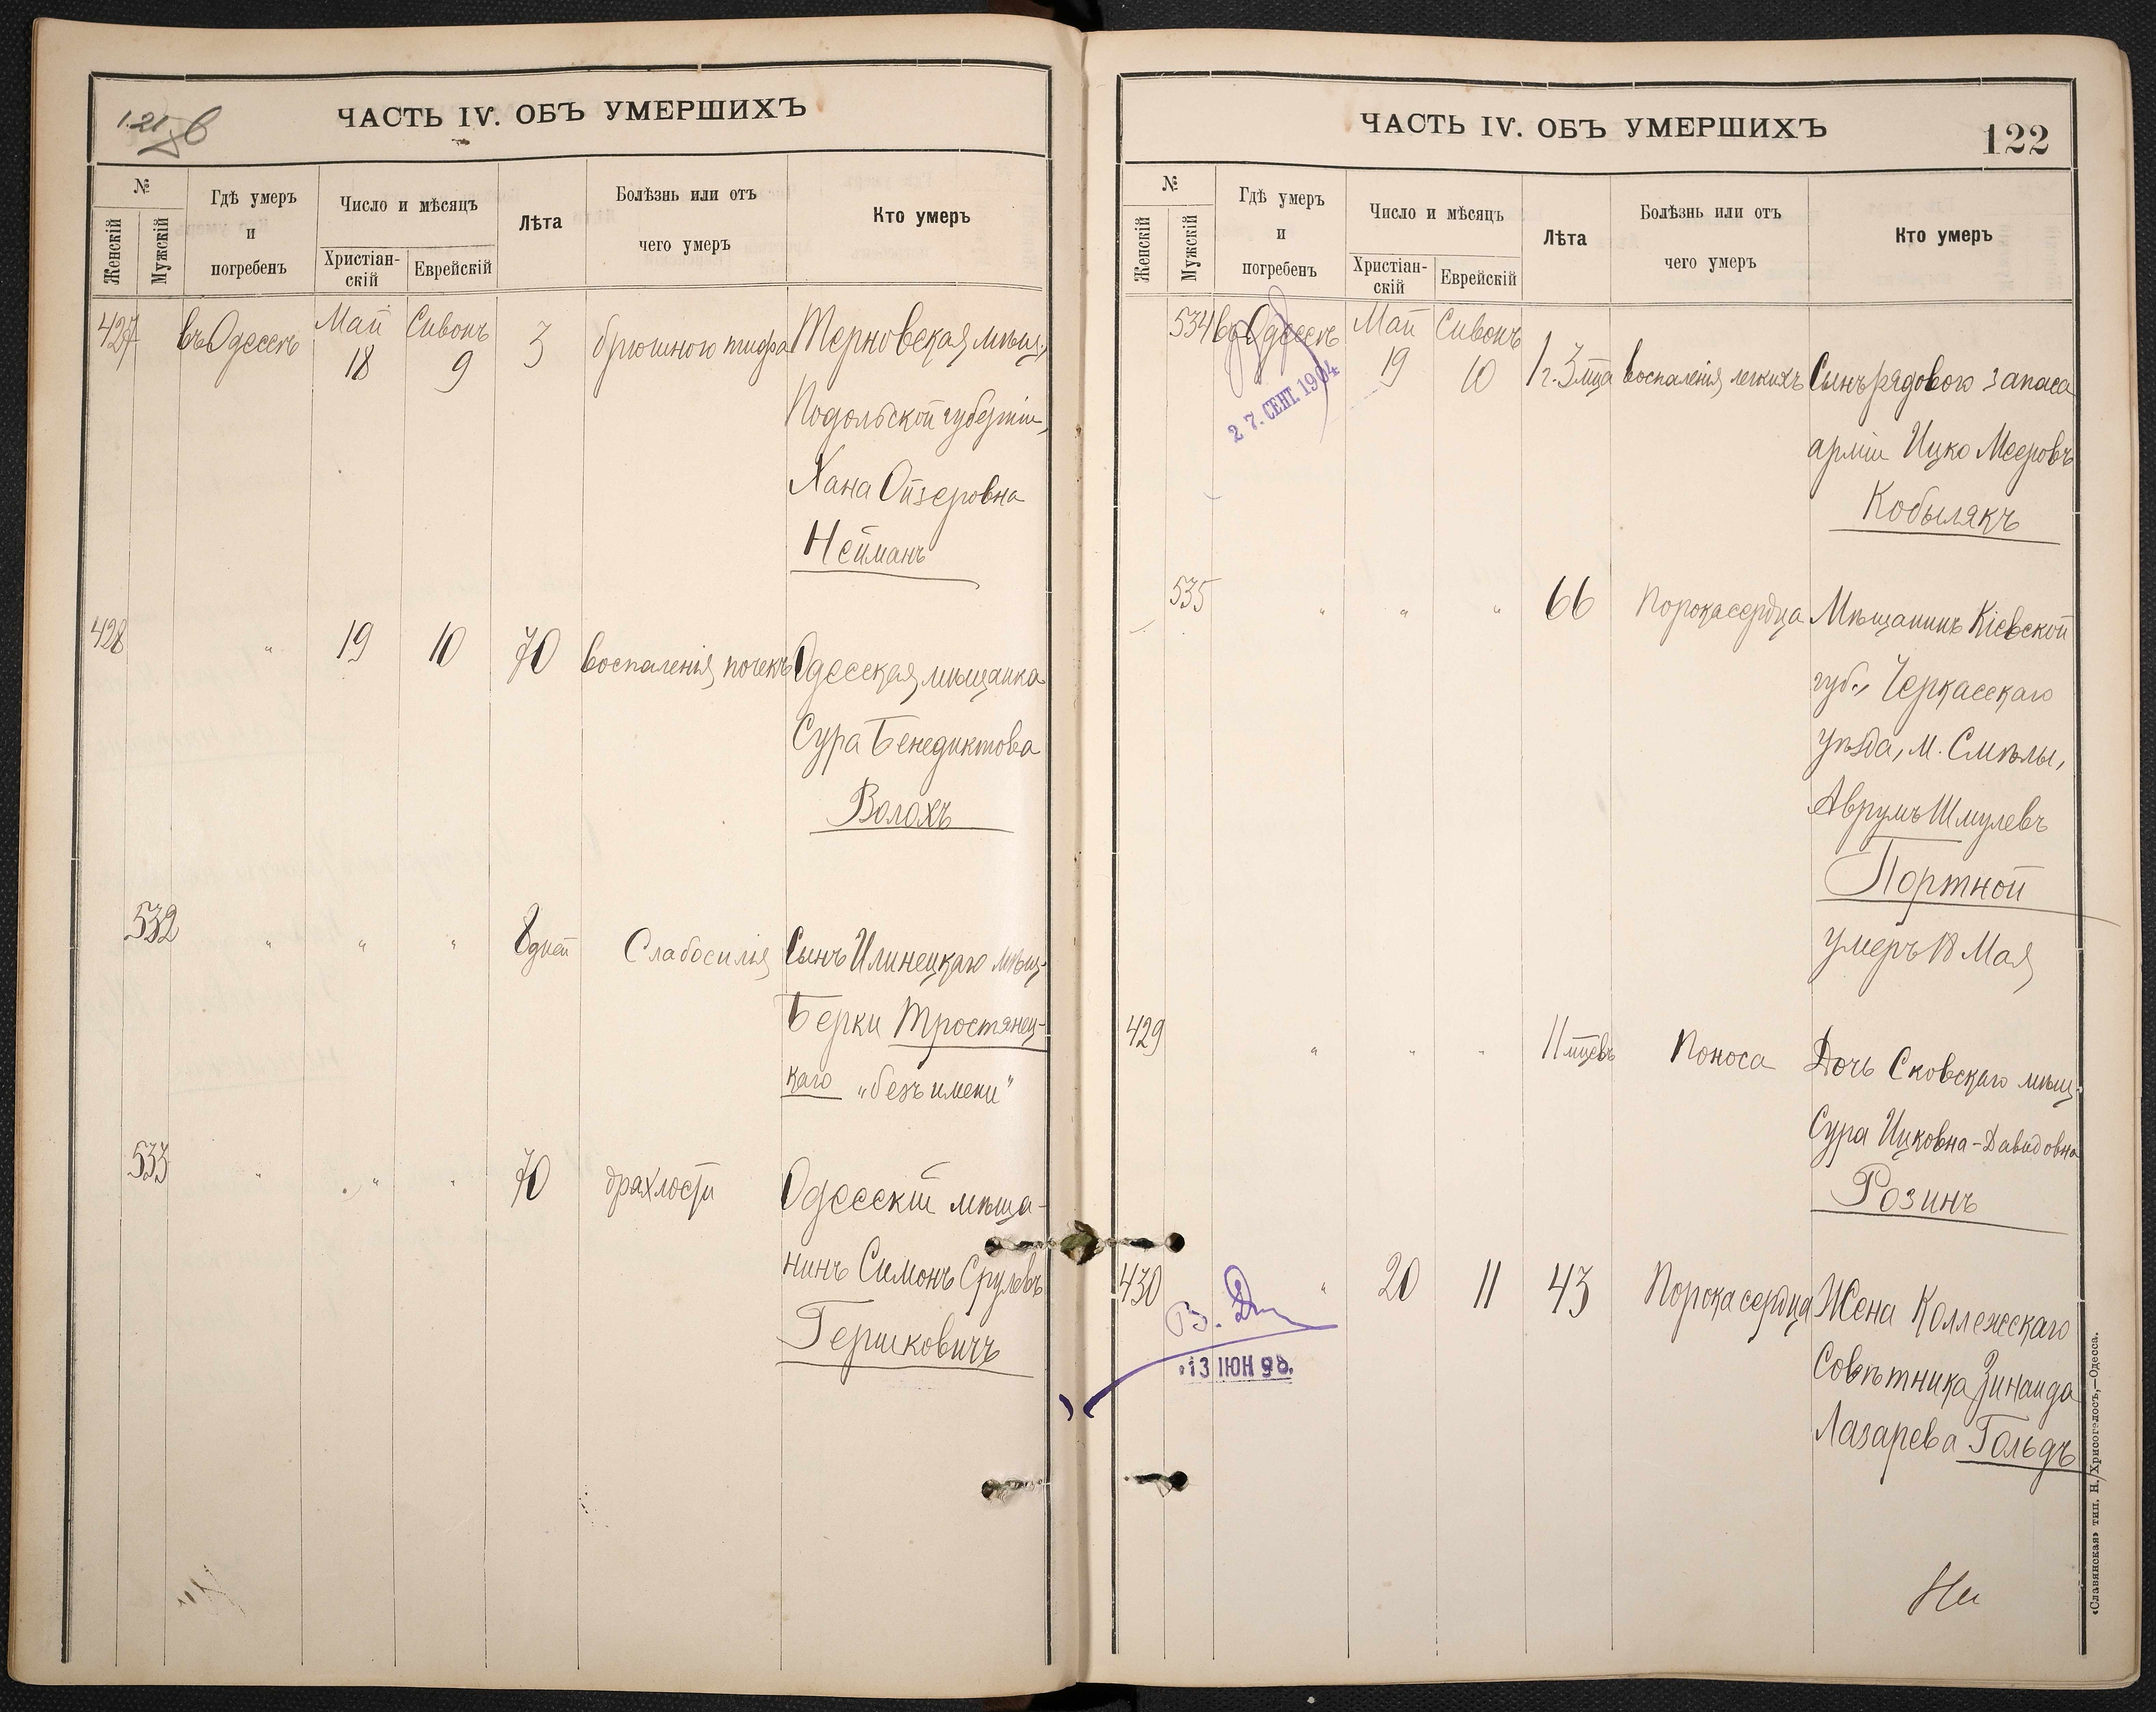 121 об
ЧАСТЬ IV. ОБЪ УМЕРШИХЪ
№
Женскій
Мужскій
Гдѣ умеръ
и
погребенъ
Число и мѣсяцъ
Христіан-
скій
Еврейскій
Лѣта
Болѣзнь или отъ
чего умеръ
Кто умеръ
427 въ Одессѣ Май 18 Сивонъ 9 3 брюшного тифа Терновская мѣщ.
Подольской губерніи,
Хана Ойзеровна
Нейманъ
428 " 19 10 70 воспаленія почекъ Одесская мѣщанка
Сура Бенедиктова
Волохъ
532 " " " 8 дней Слабосилія Сынъ Илинецкаго мѣщ.
Берки Тростянец-
каго „безъ имени"
533 " " " 70 дряхлости Одесскій мѣща-
нинъ Симонъ Срулевъ
Гершковичъ
ЧАСТЬ IV. ОБЪ УМЕРШИХЪ
122
№
Женскій
Мужскій
Гдѣ умеръ
и
погребенъ
Число и мѣсяцъ
Христіан-
скій
Еврейскій
Лѣта
Болѣзнь или отъ
чего умеръ
Кто умеръ
534 въ Одессѣ Май 19 Сивонъ 10 1 г. 3 мца воспаленія легкихъ Сынъ рядового запаса
арміи Ицко Мееровъ
Кобылякъ
27. СЕНТ. 1904
535 " " " 66 порока сердца Мѣщанинъ Кіевской
губ., Черкасскаго
уѣзда, м. Смѣлы,
Аврумъ Шмулевъ
Портной
умеръ 18 Мая
429 " " " 11 мцевъ поноса Дочь Сковскаго мѣщ.
Сура Ицковна-Давидовна
Розинъ
430 " 20 11 43 Порока сердца Жена Коллежскаго
Совѣтника Зинаида
Лазарева Гольдъ
13 ІЮН 98.
«Славянская» тип. Н. Хрисогелосъ,—Одесса.